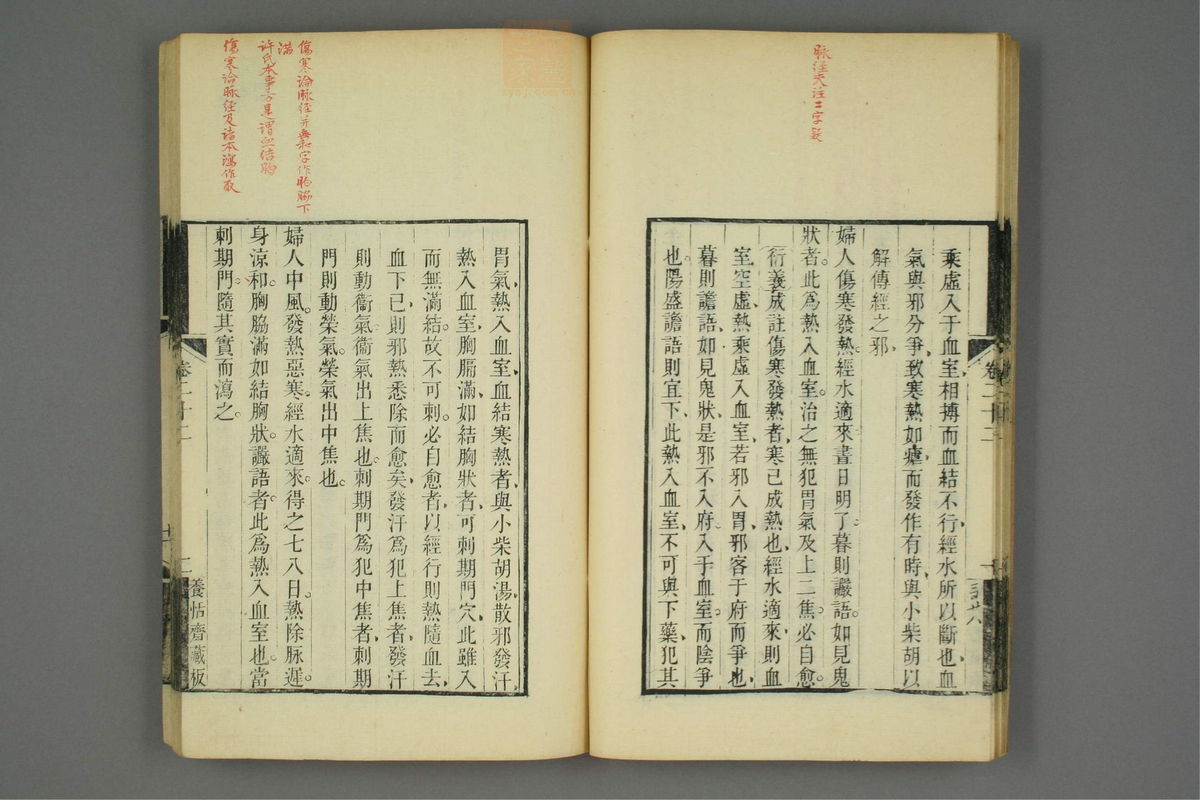 脉經夾注二字
乘虛入于血室相搏而血結不行經水所以斷也血
氣與邪分爭致寒熱如瘧而發作有時與小柴胡以
解傳經之邪
婦人傷寒發熱經水適來晝日明了暮則讝語如見鬼
狀者此爲熱入血室治之無犯胃氣及上二焦必自愈
衍義成註傷寒發熱者寒已成熱也經水適來則血
室空虛熱乘虛入血室若邪入胃邪客于府而爭也
暮則譫語如見鬼狀是邪不入府入于血室而陰爭
也陽盛譫語則宜下此熱入血室不可與下藥犯其
卷二十二
傷寒論脉經并無和字作胸脇下
滿
許氏本事方是謂血結胸
傷寒論脉經及諸本瀉作取
胃氣熱入血室血結寒熱者與小柴胡湯散邪發汗
熱入血室胸膈滿如結胸狀者可刺期門穴此雖入
而無滿結故不可刺必自愈者以經行則熱隨血去
血下已則邪熱悉除而愈矣發汗爲犯上焦者發汗
則動衞氣衞氣出上焦也刺期門爲犯中焦者刺期
門則動榮氣榮氣出中焦也
婦人中風發熱惡寒經水適來得之七八日熱除脉遲
身涼和胸脇滿如結胸狀讝語者此爲熱入血室也當
刺期門隨其實而瀉之
卷二十二
養恬齋藏板